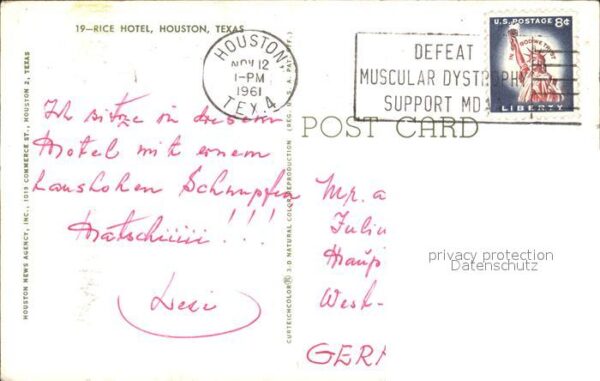 19—RICE HOTEL, HOUSTON, TEXAS
HOUSTON
NOV 12
1-PM
1961
TEX. 4
DEFEAT
MUSCULAR DYSTROPHY
SUPPORT MD
U.S. POSTAGE 8¢
IN GOD WE TRUST
LIBERTY
HOUSTON NEWS AGENCY, INC., 1019 COMMERCE ST., HOUSTON 2, TEXAS
CURTEICHCOLOR® 3-D NATURAL COLOR REPRODUCTION (REG. U. S. A. PAT. OFF.)
POST CARD
Ich sitze in diesem
Hotel mit einem
haushohen Schnupfen
Hatschiiiii!!!
Mr. a
Juliu
Haup
West-
GERM
privacy protection
Datenschutz